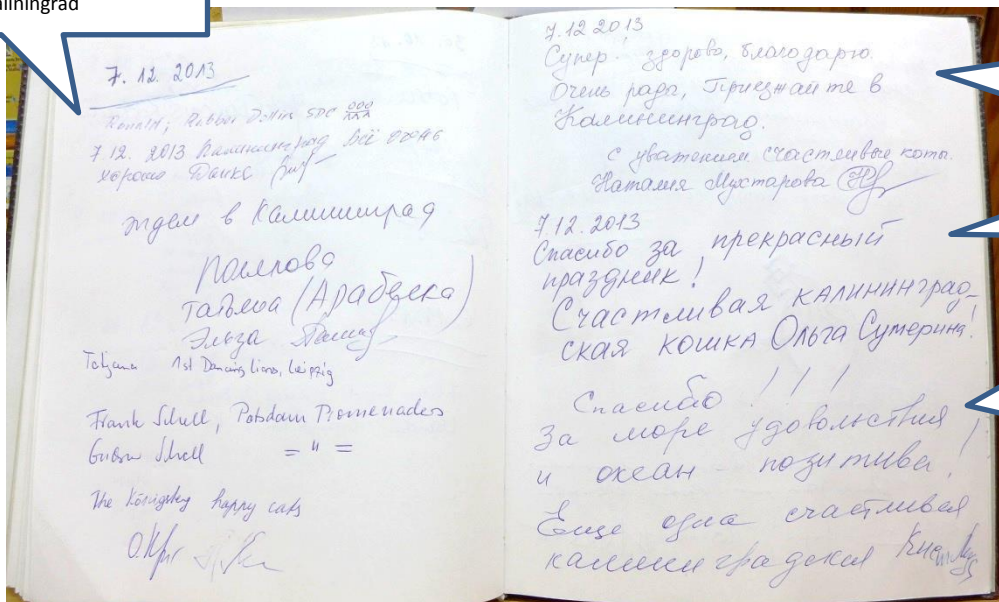 aliningrad
7.12.2013
Ronald, Rubber Dollin SDC
7.12.2013 Калининград всё очень
хорошо Danke
ждем в Калининград
Татьяна (Арабеска)
Эльза
Tatjana 1st Dancing Lions, Leipzig
Frank Schell, Potsdam Promenaders
Schell = " =
The Königsky happy cats
7.12 2013
Супер! здорово, благодарю.
Очень рады, Приезжайте в
Калининград.
с уважением счастливые коты.
Наталия Мухтарова
7.12.2013
Спасибо за прекрасный
праздник!
Счастливая калининград-
ская кошка Ольга Сумерина!
Спасибо!!!
За море удовольствия
и океан позитива!
Еще одна счастливая
калининградская